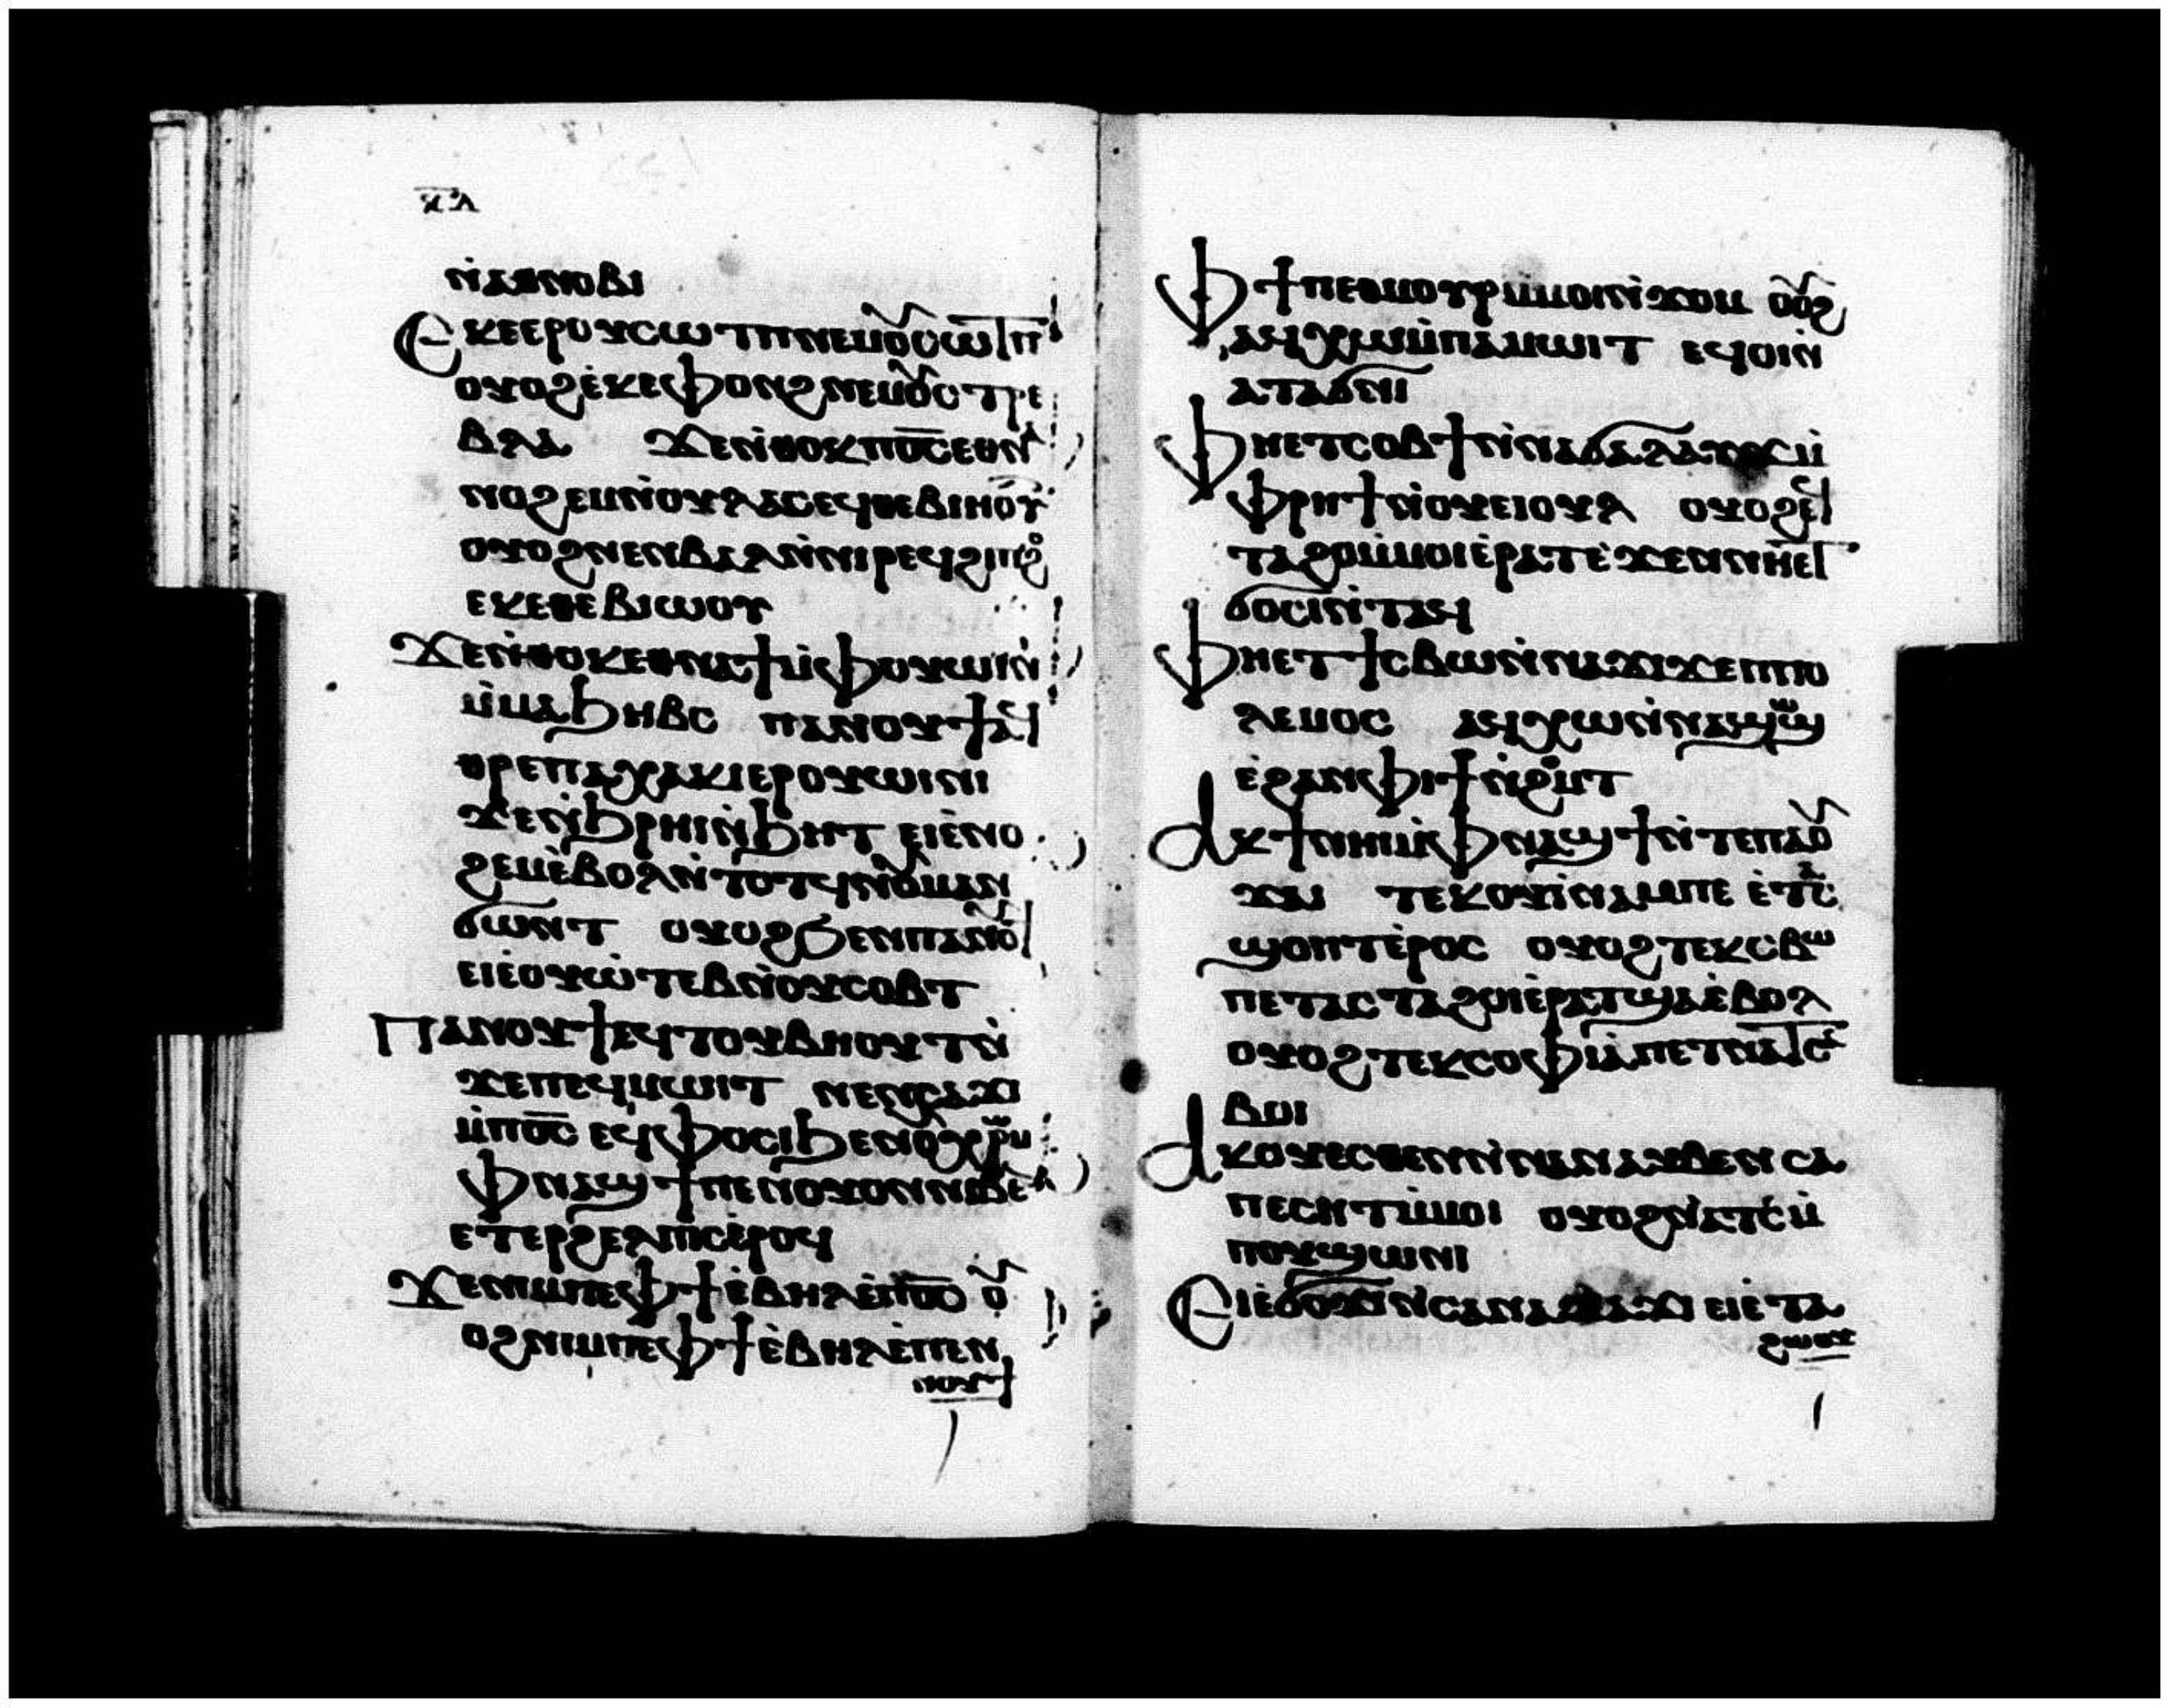 ⲕ̅ⲗ̅
ⲛ̀ⲁⲑⲛⲟⲃⲓ
Ⲉⲕⲉⲉⲣⲟⲩⲥⲱⲧⲡ ⲛⲉⲙⲟⲩⲥⲱⲧⲡ
ⲟⲩⲟϩ ⲉ̀ⲕⲉⲫⲟⲛϩ ⲛⲉⲙⲟⲩⲥⲧⲣⲉ
ⲃⲗⲁ ϫⲉ ⲛ̀ⲑⲟⲕ ⲡⲟ̅ⲥ̅ ⲉⲑⲛⲁ
ⲛⲟϩⲉⲙ ⲛ̀ⲟⲩⲗⲁⲟⲥ ⲉϥⲑⲉⲃⲓⲏⲟⲩⲧ
ⲟⲩⲟϩ ⲛⲉⲛⲃⲁⲗ ⲛ̀ⲛⲓⲣⲉϥϭⲓⲛϩⲟ
ⲉⲕⲉⲑⲉⲃⲓⲱⲟⲩ
Ϫⲉ ⲛ̀ⲑⲟⲕ ⲉⲑⲛⲁϯ ⲙ̀ⲫⲟⲩⲱⲓⲛⲓ
ⲙ̀ⲡⲁϧⲏⲃⲥ ⲡⲁⲛⲟⲩϯ ⲉⲕⲉ̀
ⲑⲣⲉ ⲡⲁⲭⲁⲕⲓ ⲉⲣⲟⲩⲱⲓⲛⲓ
ϫⲉ ⲛ̀ϧⲣⲏⲓ ⲛ̀ϧⲏⲧⲕ ⲉⲓⲉ̀ⲛⲟ
ϩⲉⲙ ⲉ̀ⲃⲟⲗ ⲛ̀ⲧⲟⲧϥ ⲛ̀ⲟⲩⲙⲁⲛ
ϭⲱⲛⲧ ⲟⲩⲟϩ ϧⲉⲛ ⲡⲁⲛⲟⲩϯ
ⲉⲓⲉ̀ⲟⲩⲱ̀ⲧⲉⲃ ⲛ̀ⲟⲩⲥⲟⲃⲧ
Ⲡⲁⲛⲟⲩϯ ϥⲧⲟⲩⲃⲏⲟⲩⲧ ⲛ̀
ϫⲉ ⲡⲉϥⲙⲱⲓⲧ ⲛⲉⲛⲥⲁϫⲓ
ⲙ̀ⲡⲟ̅ⲥ̅ ⲉⲩⲫⲟⲥⲓ ϧⲉⲛ ⲟⲩⲭⲣⲱⲙ
ϥⲛⲁϣϯ ⲡⲉ ⲛ̀ⲟⲩⲟⲛ ⲛⲓⲃⲉⲛ
ⲉⲧⲉⲣϩⲉⲗⲡⲓⲥ ⲉ̀ⲣⲟϥ
Ϫⲉ ⲛⲓⲙ ⲡⲉ ⲫϯ ⲉ̀ⲃⲏⲗ ⲉ̀ⲡⲟ̅ⲥ̅ ⲟⲩ
ⲟϩ ⲛⲓⲙ ⲡⲉ ⲫϯ ⲉ̀ⲃⲏⲗ ⲉ̀ⲡⲉⲛ
ⲛⲟⲩϯ
Ⲫϯ ⲡⲉⲑⲙⲟⲩⲣ ⲙ̀ⲙⲟⲓ ⲛ̀ϫⲟⲙ ⲟⲩⲟϩ
ⲁϥⲭⲱ ⲙ̀ⲡⲁⲙⲱⲓⲧ ⲉϥⲟⲓ ⲛ̀
ⲁⲧⲁϭⲛⲓ
Ⲫⲏⲉⲧⲥⲟⲃϯ ⲛ̀ⲛⲁϭⲁⲗⲁⲩϫ ⲙ̀
ⲫⲣⲏϯ ⲛ̀ⲟⲩⲉⲓⲟⲩⲗ ⲟⲩⲟϩ ⲉϥ
ⲧⲁϩⲟ ⲙ̀ⲙⲟⲓ ⲉ̀ⲣⲁⲧ ⲉ̀ϫⲉⲛ ⲛⲏⲉⲧ
ϭⲟⲥⲓ ⲛ̀ⲧⲁϥ
Ⲫⲏⲉⲧϯⲥⲃⲱ ⲛ̀ⲛⲁϫⲓϫ ⲉⲡⲡⲟ
ⲗⲉⲙⲟⲥ ⲁϥⲭⲱ ⲛ̀ⲛⲁϣⲱϣ
ⲉ̀ϩⲁⲛⲫⲓϯ ⲛ̀ϩⲟⲙⲧ
Ⲁⲕϯ ⲛⲏⲓ ⲙ̀ⲫⲛⲁϣϯ ⲛ̀ⲧⲉ ⲡⲁⲟⲩ
ϫⲁⲓ ⲧⲉⲕⲟⲩⲓ̀ⲛⲁⲙ ⲡⲉ ⲉ̀ⲧⲁⲥ
ϣⲟⲡⲧ ⲉ̀ⲣⲟⲥ ⲟⲩⲟϩ ⲧⲉⲕⲥⲃⲱ
ⲡⲉⲧⲁⲥⲧⲁϩⲟⲓ ⲉ̀ⲣⲁⲧ ϣⲁ ⲉ̀ⲃⲟⲗ
ⲟⲩⲟϩ ⲧⲉⲕⲥⲟⲫⲓⲁ̀ ⲡⲉⲧⲛⲁϯⲥ
ⲃⲱⲓ
Ⲁⲕⲟⲩⲉⲥⲑⲉⲛ ⲛ̀ⲛⲁⲛⲁⲩⲃⲉⲛ ⲥⲁ
ⲡⲉⲥⲏⲧ ⲙ̀ⲙⲟⲓ ⲟⲩⲟϩ ⲛ̀ⲁⲧⲥⲙ̀
ⲡⲟⲩϣⲱⲛⲓ
Ⲉⲓⲉ̀ϭⲟϫⲓ ⲛ̀ⲥⲁ ⲛⲁϫⲁϫⲓ ⲉⲓⲉ̀ⲧⲁ
ϩⲱⲟⲩ